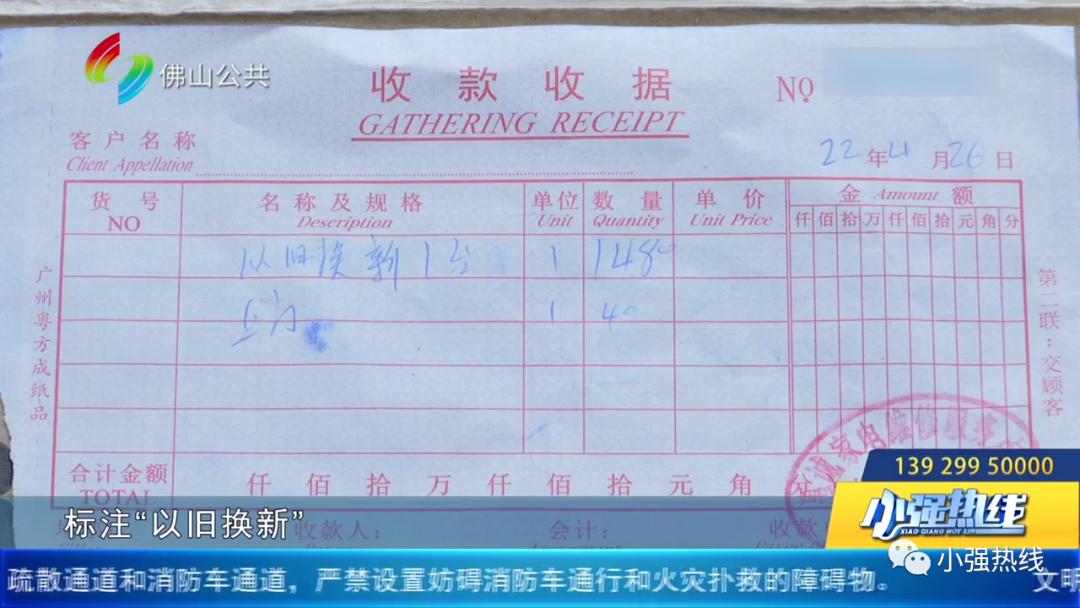 佛山公共
收款收据
NO
GATHERING RECEIPT
客户名称
Client Appellation
22年4月26日
货号 名称及规格 单位 数量 单价 金 Amount 额
NO Description Unit Quantity Unit Price 仟佰拾万仟佰拾元角分
以旧换新1台 1 1480
1 40
广州粤方成纸品
第二联：交顾客
合计金额 仟佰拾万仟佰拾元角分
TOTAL
家电维修服务
139 299 50000
小强热线
XIAO QIANG HOT LIN
标注“以旧换新”
收款人： 会计：
小强热线
疏散通道和消防车通道，严禁设置妨碍消防车通行和火灾扑救的障碍物。 文明